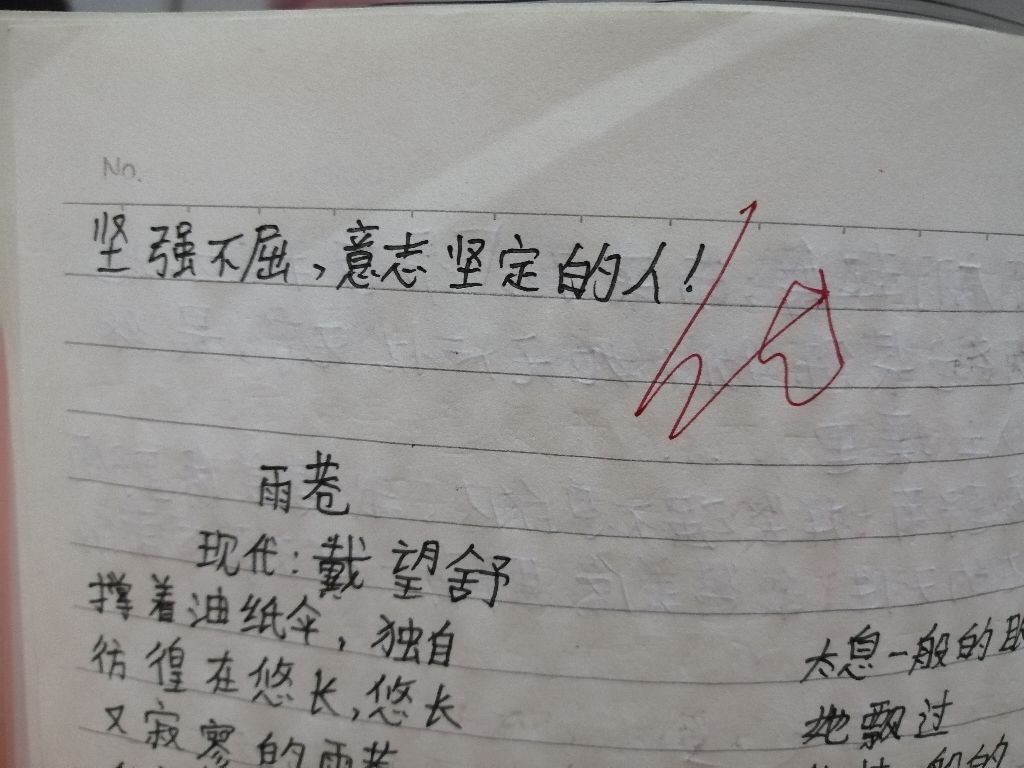 No.
坚强不屈,意志坚定的人!
雨巷
现代:戴望舒
撑着油纸伞,独自
彷徨在悠长,悠长
又寂寥的雨巷
太息一般的
她飘过
般的